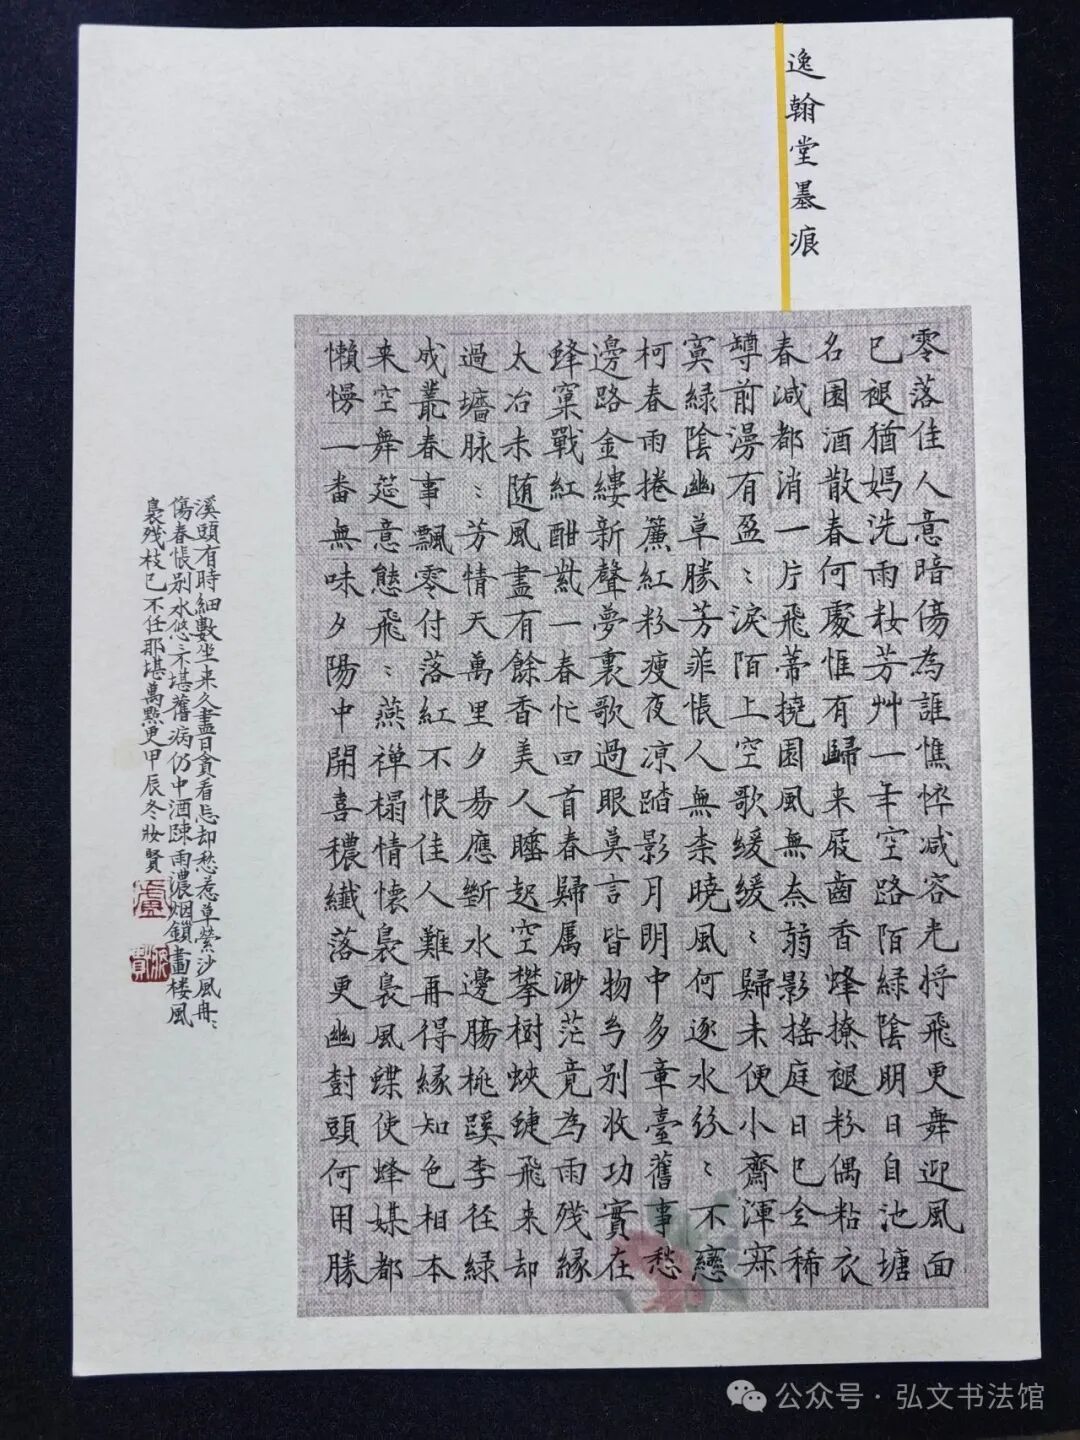 逸翰堂墨痕
零落佳人意暗傷為誰憔悴减容光将飛更舞迎風面
已褪猶嫣洗雨妝芳艸一年空路陌綠陰明日自池塘
名園酒散春何處惟有歸来屐齒香烽撩褪粉偶粘衣
春减都消一片飛蒂撓園風無奈弱影搖庭日已全稀
罇前漫有盈〻淚陌上空歌緩緩〻歸未便小齋渾寂
寞綠陰幽草勝芳菲悵人無柰曉風何逐水紛〻不戀
柯春雨捲簾紅粉瘦夜凉踏影月明中多章臺舊事愁
邊路金縷新聲夢裏歌過眼莫言皆物兮別收功實在
蜂窠戰紅酣紫一春忙回首春歸属渺茫竟為雨殘緣
太冶未随風盡有餘香美人睡起空攀樹蛺蜨飛来却
過墻脉〻芳情天萬里夕昜應斷水邊腸桃蹊李径綠
成叢春事飄零付落紅不恨佳人難再得緣知色相本
来空舞莚意態飛〻燕禅榻情懷裊裊風蝶使蜂媒都
懶慢一番無味夕陽中開喜穠纖落更幽封頭何用勝
溪頭有時細數坐来久盡日貪看忘却愁惹草縈沙風冉〻
傷春悵別水悠〻不堪舊病仍中酒踈雨濃烟鎖畫楼風
裊殘枝已不任那堪萬點更甲辰冬妝賢
公众号·弘文书法馆